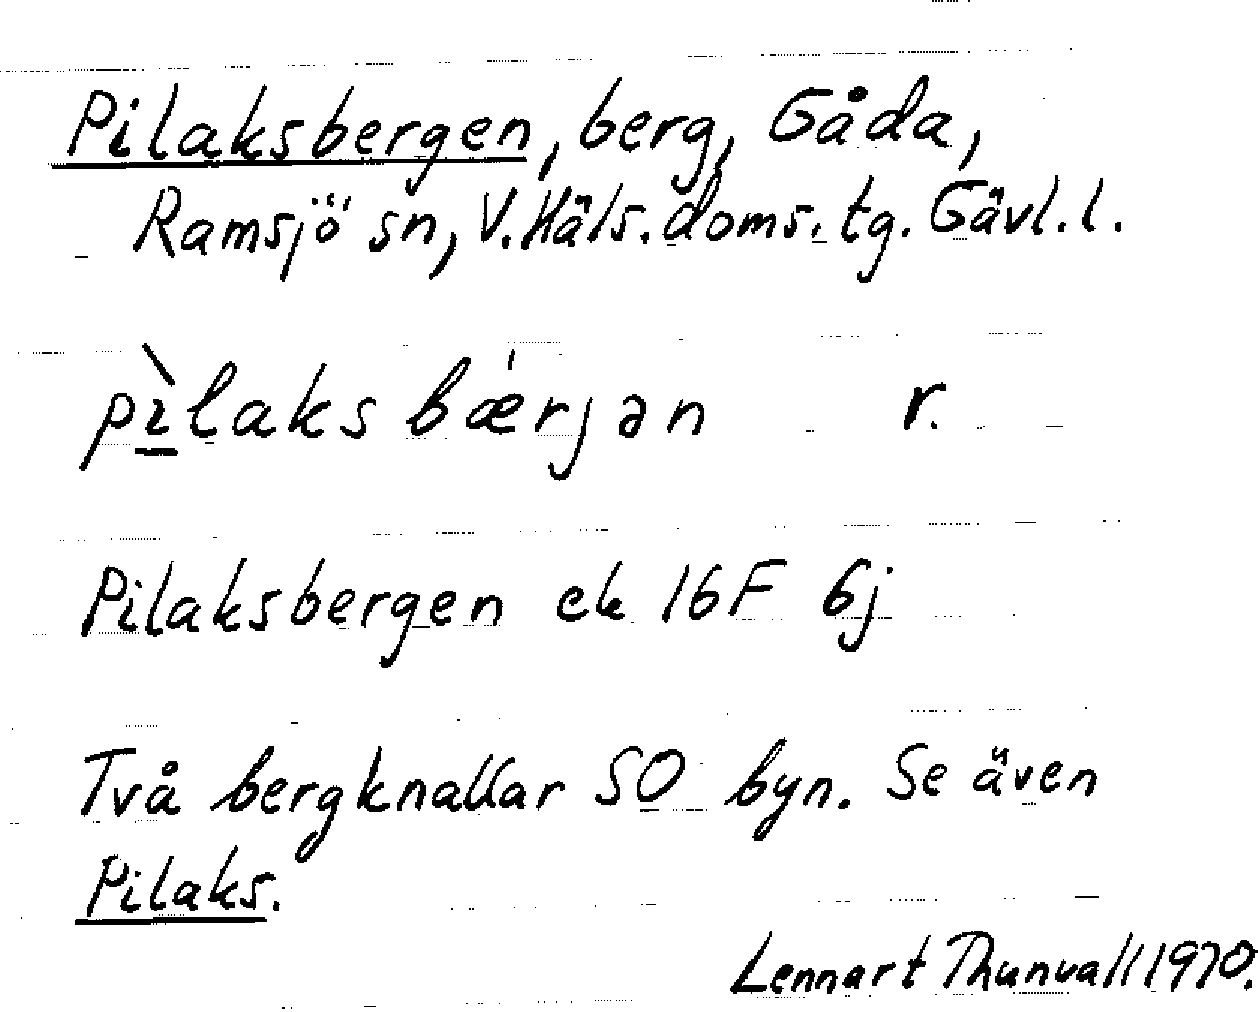 Pilaksbergen, berg, Gåda,
Ramsjö sn, V. Häls. doms. tg. Gävl. l.
pı̀laks bæ̍rjən r.
Pilaksbergen ek 16F 6j
Två bergknallar SO byn. Se även
Pilaks.
Lennart Thunvall 1970.